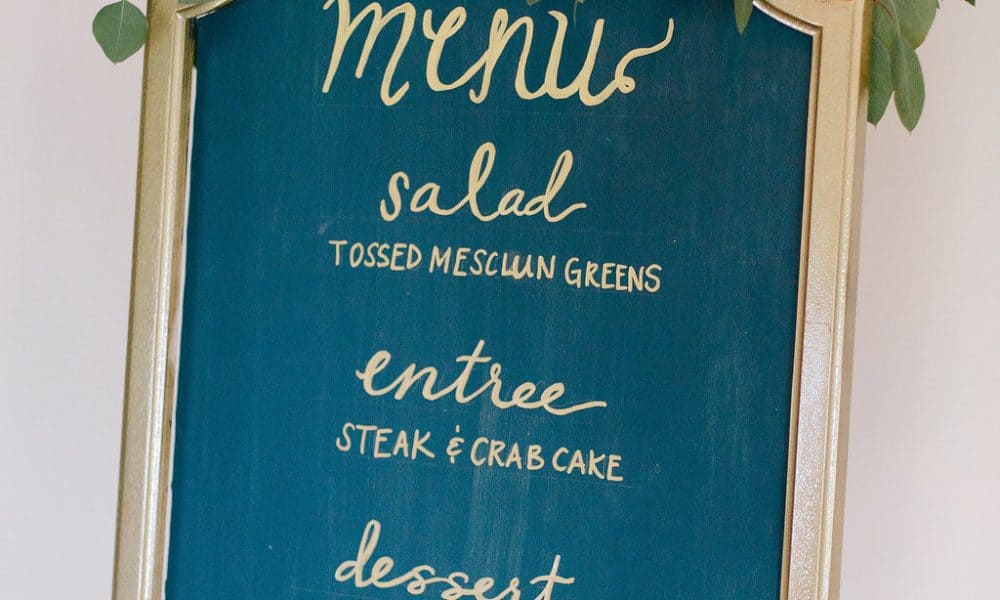 menu
salad
TOSSED MESCLUN GREENS
entree
STEAK & CRAB CAKE
dessert